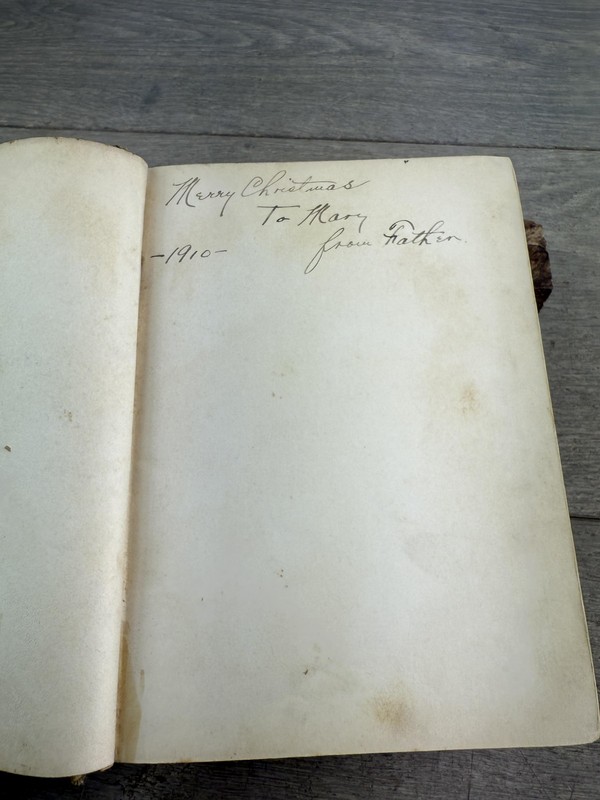 Merry Christmas
To Mary
from Father.
-1910-